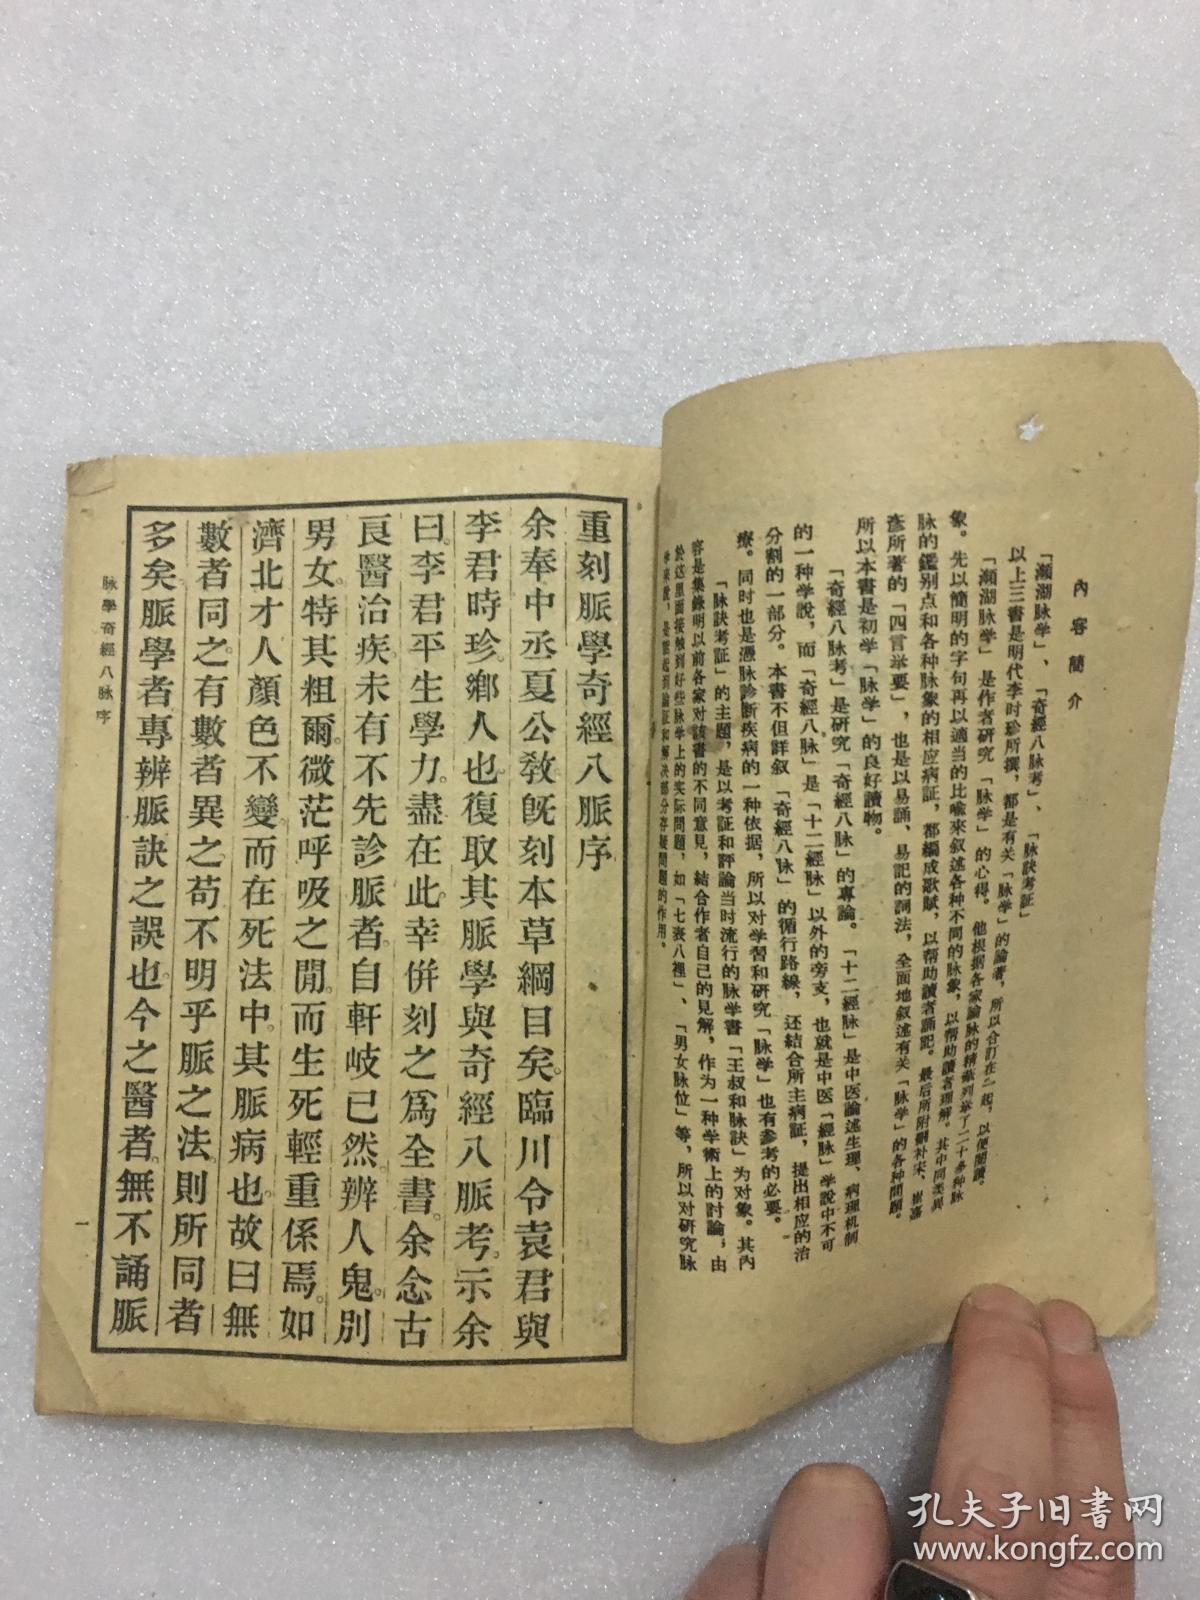 內容簡介
「瀕湖脉学」、「奇經八脉考」、「脉訣考証」
以上三書是明代李时珍所撰，都是有关「脉学」的論著，所以合訂在一起，以便閱讀。
「瀕湖脉学」是作者研究「脉学」的心得。他根据各家論脉的精蘊列举了二十多种脉
象。先以簡明的字句再以適当的比喻來叙述各种不同的脉象，以帮助讀者理解。其中同类異
脉的鑑别点和各种脉象的相应病証，都編成歌賦，以帮助讀者誦記。最后所附刪补宋、崔嘉
彥所著的「四言举要」，也是以易誦、易記的詞法，全面地叙述有关「脉学」的各种問題。
所以本書是初学「脉学」的良好讀物。
「奇經八脉考」是研究「奇經八脉」的專論。「十二經脉」是中医論述生理、病理机制
的一种学說，而「奇經八脉」是「十二經脉」以外的旁支，也就是中医「經脉」学說中不可
分割的一部分。本書不但詳叙「奇經八脉」的循行路線，还結合所主病証，提出相应的治
療。同时也是憑脉診断疾病的一种依据，所以对学習和研究「脉学」也有参考的必要。
「脉訣考証」的主題，是以考証和評論当时流行的脉学書「王叔和脉訣」为对象。其內
容是集錄明以前各家对該書的不同意見，結合作者自己的見解，作为一种学術上的討論，由
於这里面接触到好些脉学上的实际問題，如「七表八裡」、「男女脉位」等，所以对研究脉
学來說，是能起到論証和解决部分存疑問題的作用。
重刻脈學奇經八脈序
余奉中丞夏公教旣刻本草綱目矣。臨川令袁君與
李君時珍鄉人也復取其脈學與奇經八脈考。示余
曰。李君平生學力。盡在此。幸併刻之爲全書。余念古
良醫治疾。未有不先診脈者。自軒岐已然。辨人鬼。別
男女。特其粗爾。微茫呼吸之閒。而生死輕重係焉。如
濟北才人顏色不變。而在死法中。其脈病也。故曰無
數者同之。有數者異之。苟不明乎脈之法。則所同者
多矣。脈學者專辨脈訣之誤也。今之醫者。無不誦脈
脉學奇經八脉序
一
孔夫子旧書网
www.kongfz.com